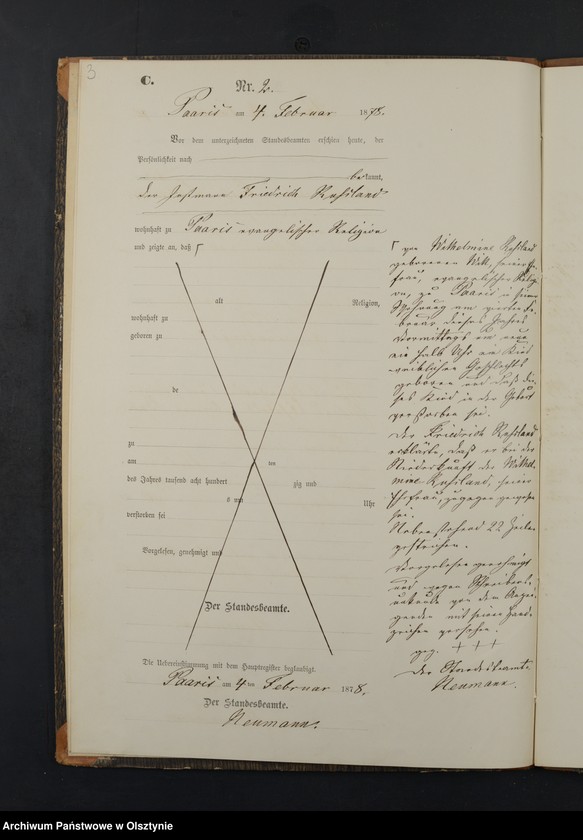 3
C.
Nr. 2.
Paaris am 4. Februar 1878.
Vor dem unterzeichneten Standesbeamten erschien heute, der
Persönlichkeit nach
bekannt,
der Friedrich Kuhsland
wohnhaft zu Paaris evangelischer Religion
und zeigte an, daß
alt Religion,
wohnhaft zu
geboren zu
de
zu
am ten
des Jahres tausend acht hundert zig und
s um Uhr
verstorben sei
Vorgelesen, genehmigt und
Der Standesbeamte.
Die Uebereinstimmung mit dem Hauptregister beglaubigt.
Paaris am 4 ten Februar 1878.
Der Standesbeamte.
Neumann.
von Wilhelmine
geborenen seiner Ehe-
frau, evangelischer Religi-
on, zu Paaris in seiner
Wohnung am vierten Fe-
bruar dieses Jahres
Vormittags um neun
ein halb Uhr ein Kind
weiblichen Geschlechts
geboren und daß die-
ses Kind in der Geburt
verstorben sei.
Der Friedrich
erklärte, daß er bei der
Niederkunft der Wilhel-
mine seiner
Ehefrau, zugegen gewesen
sei.
Nebenstehend 22 Zeilen
gestrichen.
Vorgelesen genehmigt
und wegen Schreibens-
unkunde von dem Anzei-
genden mit seinem Hand-
zeichen versehen.
gez. + + +
Der Standesbeamte
Neumann.
Archiwum Państwowe w Olsztynie